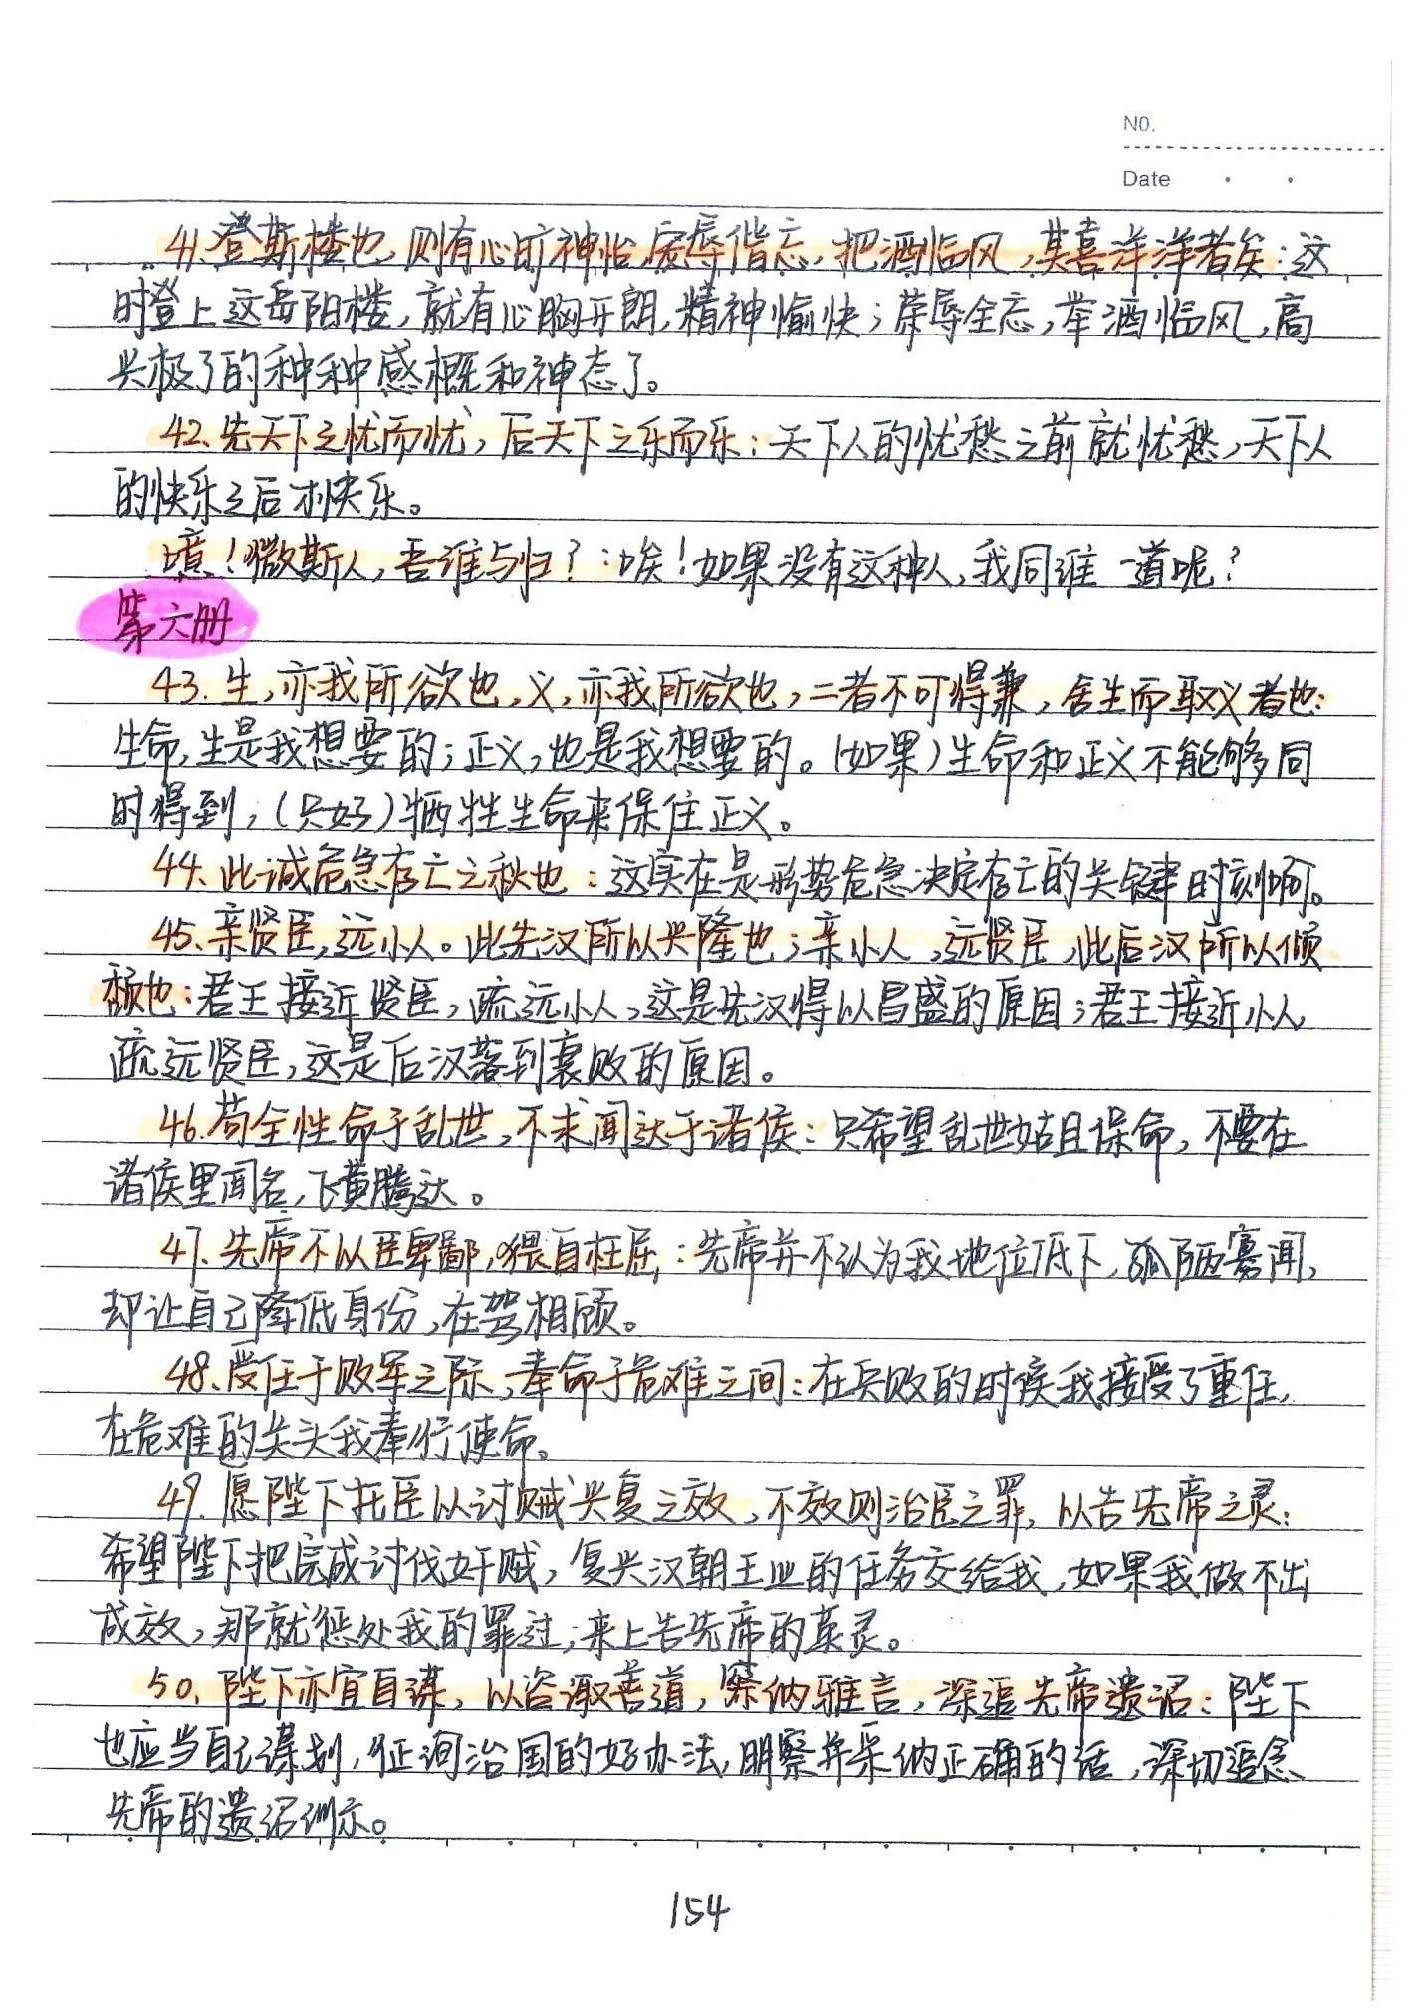 NO.
Date
41.登斯楼也,则有心旷神怡,宠辱偕忘,把酒临风,其喜洋洋者矣:这
时登上这岳阳楼,就有心胸开朗,精神愉快;荣辱全忘,举酒临风,高
兴极了的种种感概和神态了。
42.先天下之忧而忧,后天下之乐而乐:天下人的忧愁之前就忧愁,天下人
的快乐之后才快乐。
噫!微斯人,吾谁与归?:唉!如果没有这种人,我同谁一道呢?
第六册
43.生,亦我所欲也,义,亦我所欲也,二者不可得兼,舍生而取义者也:
生命,生是我想要的;正义,也是我想要的。(如果)生命和正义不能够同
时得到,(只好)牺牲生命来保住正义。
44.此诚危急存亡之秋也:这实在是形势危急决定存亡的关键时刻啊。
45.亲贤臣,远小人。此先汉所以兴隆也;亲小人,远贤臣,此后汉所以倾
颓也:君王接近贤臣,疏远小人,这是先汉得以昌盛的原因;君王接近小人,
疏远贤臣,这是后汉落到衰败的原因。
46.苟全性命于乱世,不求闻达于诸侯:只希望乱世姑且保命,不要在
诸侯里闻名,飞黄腾达。
47.先帝不以臣卑鄙,猥自枉屈,:先帝并不认为我地位低下,孤陋寡闻,
却让自己降低身份,在驾相顾。
48.受任于败军之际,奉命于危难之间:在兵败的时候我接受了重任,
在危难的关头我奉行使命。
49.愿陛下托臣以讨贼兴复之效,不效则治臣之罪,以告先帝之灵:
希望陛下把完成讨伐奸贼,复兴汉朝王业的任务交给我,如果我做不出
成效,那就惩处我的罪过,来上告先帝的英灵。
50.陛下亦宜自谋,以咨诹善道,察纳雅言,深追先帝遗诏:陛下
也应当自己谋划,征询治国的好办法,明察并采纳正确的话,深切追念
先帝的遗诏训示。
154